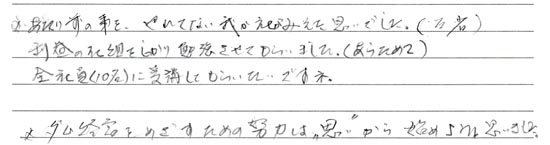 ※あたり前の事を、やれてない我が社がみえた思いでした。(一万名)
利益の仕組をしっかり勉強させてもらいました。(あらためて)
全社員(10名)に受講してもらいたいですネ。
※ダム経営をめざすための努力は、"思い"から始めようと思いました。